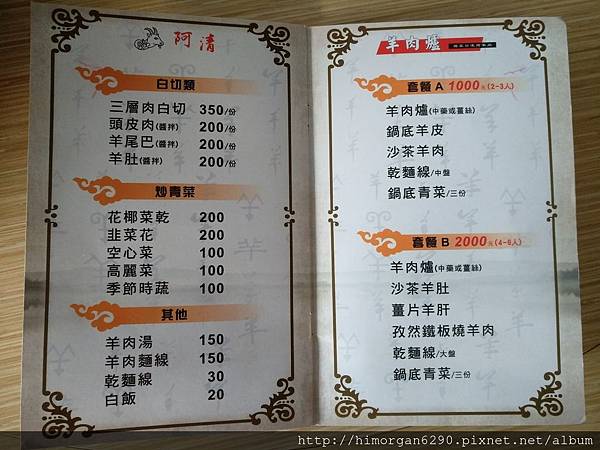 阿清
白切類
三層肉白切 350/份
頭皮肉(醬拌) 200/份
羊尾巴(醬拌) 200/份
羊肚(醬拌) 200/份
炒青菜
花椰菜乾 200
韭菜花 200
空心菜 100
高麗菜 100
季節時蔬 100
其他
羊肉湯 150
羊肉麵線 150
乾麵線 30
白飯 20
羊肉爐
套餐 A 1000元(2~3人)
羊肉爐(中藥或薑絲)
鍋底羊皮
沙茶羊肉
乾麵線/中盤
鍋底青菜/三份
套餐 B 2000元(4~6人)
羊肉爐(中藥或薑絲)
沙茶羊肚
薑片羊肝
孜然鐵板燒羊肉
乾麵線/大盤
鍋底青菜/三份
http://himorgan6290.pixnet.net/album